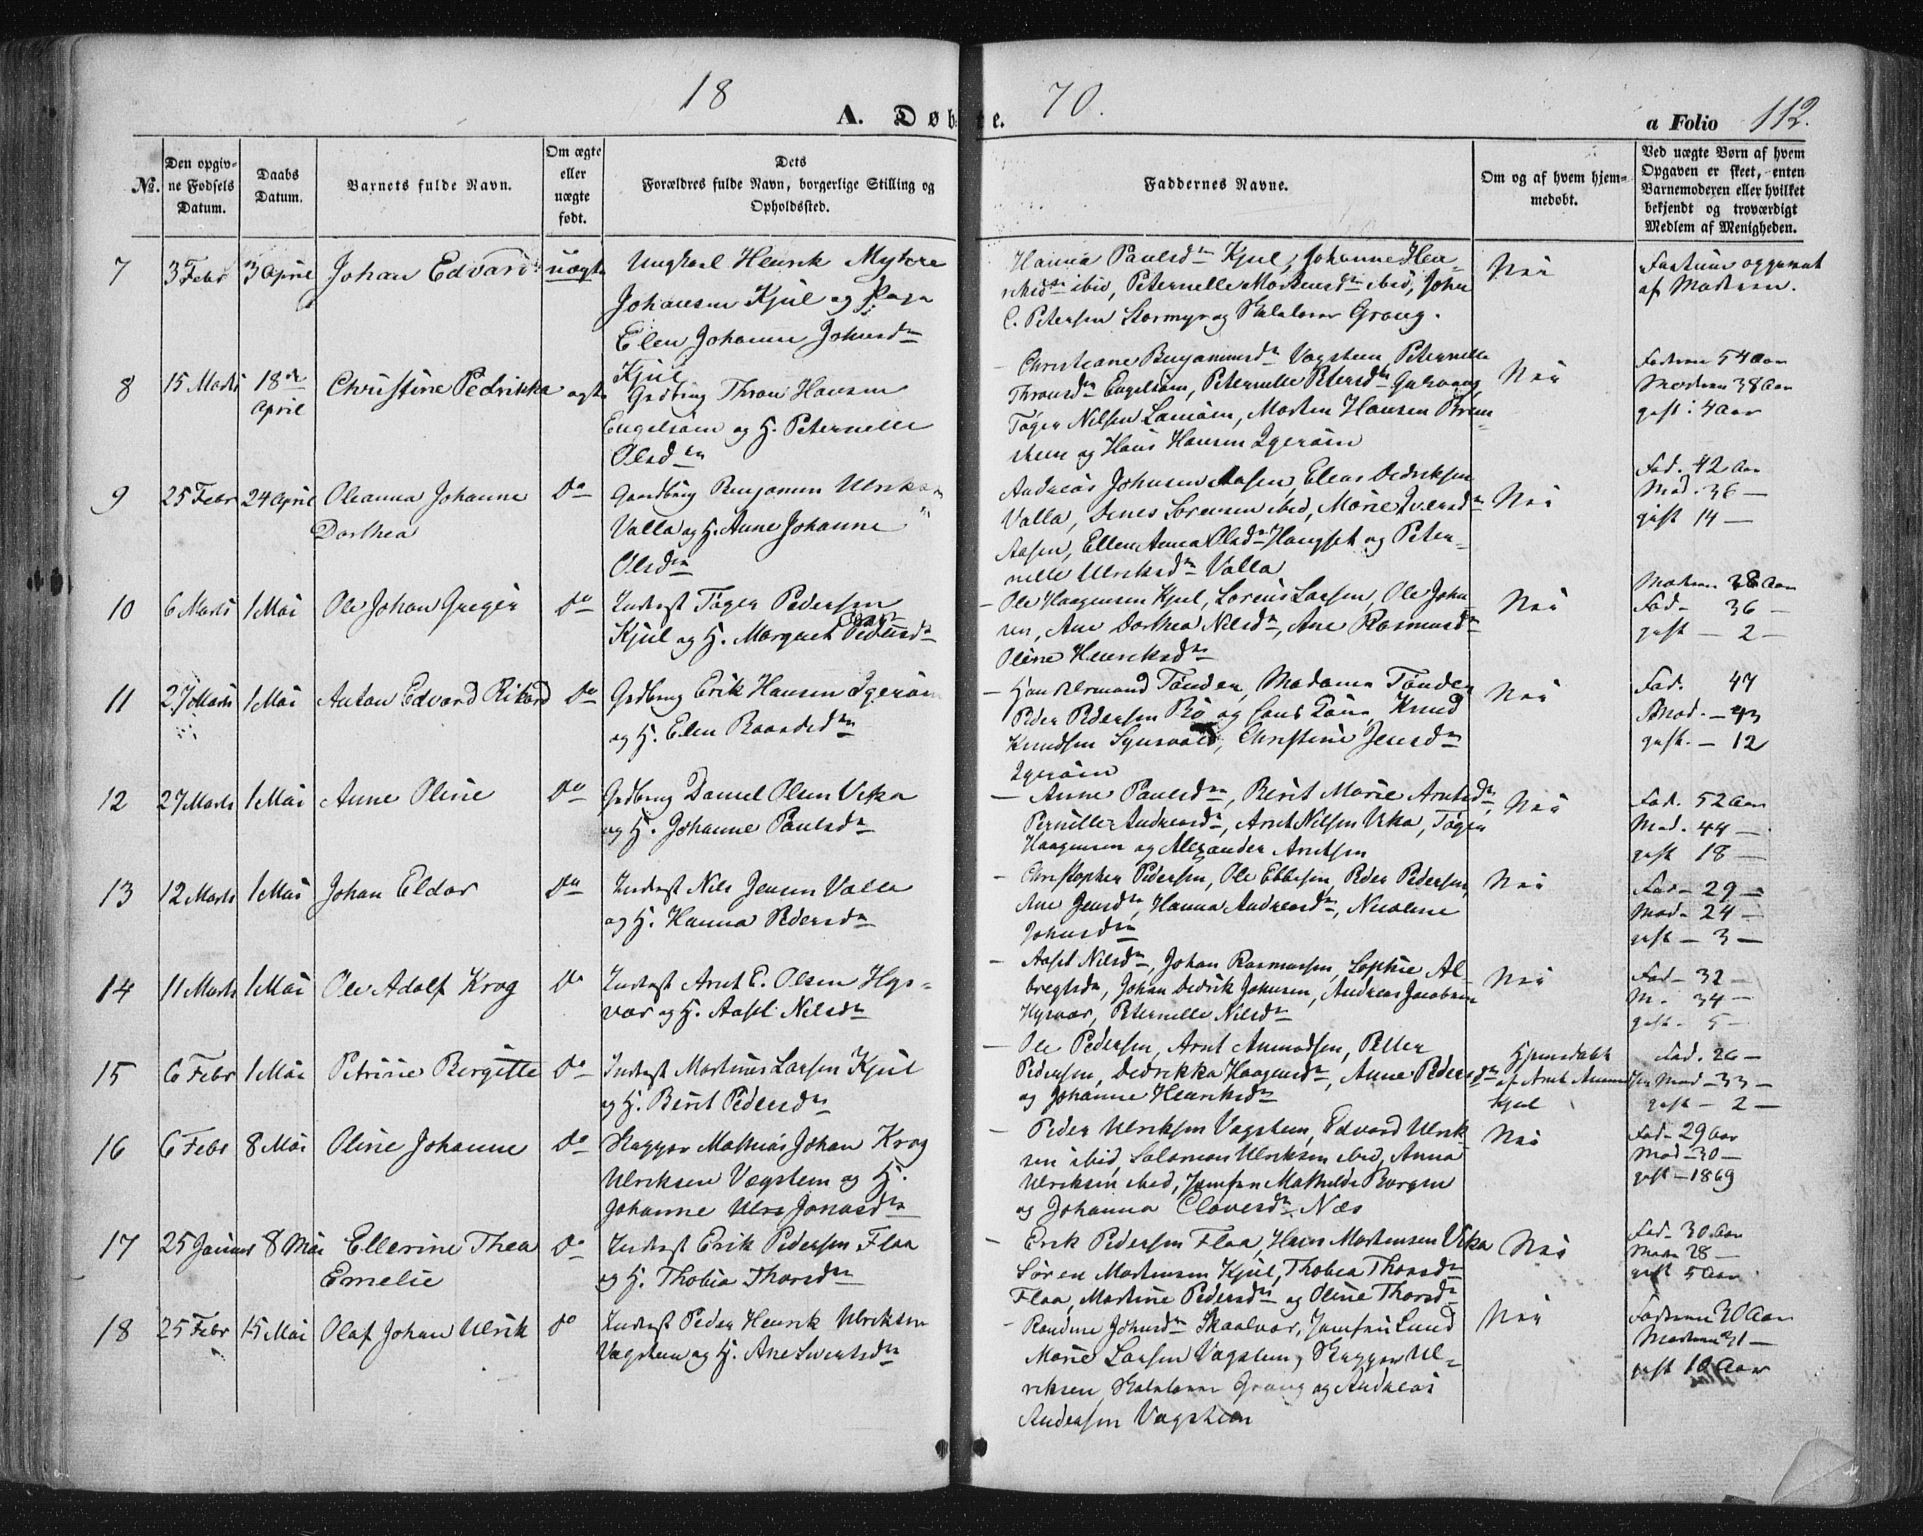 18 70.
A. Døbte.
a Folio 112.
No.
Den opgiv-
ne Fødsels
Datum.
Daabs
Datum.
Barnets fulde Navn.
Om ægte
eller
uægte
født.
Dets
Forældres fulde Navn, borgerlige Stilling og
Opholdssted.
Faddernes Navne.
Om og af hvem hjem-
medøbt.
Ved uægte Børn af hvem
Opgaven er skeet, enten
Barnemoderen eller hvilket
bekjendt og troværdigt
Medlem af Menigheden.
7 3 Febr 3 April Johan Edvard uægte Ungkarl Henrik
Johansen Kjul og Pige
Elen Johanne Johnsdn
Kjul
Hanna Paulsdn Kjul, Johanne Hen-
riksdn ibid, Peternelle Mortensdn ibid, John
C. Petersen Stormyr og Grong.
Nei
af Moderen.
8 15 Marts 18de April Christine Pedrikka ægte Gaardbrug Thron Hansen
og H. Peternelle
Olsdn
Christiane Benjaminsdn Vægstein, Peternelle
Thronsdn, Peternelle Petersdn
Tøger Nilsen, Morten Hansen
og Hans Hansen Igerøen
Nei
Faderen 54 Aar
Moderen 38 Aar
gift: 4 Aar
9 25 Febr 24 April Oleanna Johanne
Dorthea
Do Gaardbrug Benjamin Ulriksen
Valla og H. Anne Johanne
Olsdn
Andreas Johnsen Aasen, Elias Dedriksen
Valla, Sørensen ibid, Marie Iversdn
Aasen, Ellen Anna Olsdn og Peter-
nelle Ulriksdn Valla
Nei
Fad. 42 Aar
Mod. 36 —
gift 14 —
10 6 Marts 1 Mai Ole Johan Greger Do Inderst Tøger Pedersen
Kjul og H. Margret Pedersdn
— Ole Haagensen Kjul, Lorens Larsen, Ole John-
sen, Ane Dorthea Nilsdn, Ane Rasmusdn
Oline Henriksdn
Nei
Moderen 38 Aar
Fad- 36 —
gift — 2 —
11 27 Marts 1 Mai Anton Edvard Rikard Do Grdbrug Erik Hansen Igerøen
og H. Elen Baardsdn
— Tønder, Madame Tønder
Peder Pedersen Bø og, Knud
Knudsen, Christine Jensdn
Igerøen
Nei
Fad.
Mod. — 43
gift. — 12
12 27 Marts 1 Mai Anne Oline Do Grdbrug Daniel Olsen Vika
og H. Johanne Paulsdn
— Anne Paulsdn, Berit Marie Arntsdn,
Pernille Andreasdn, Arnt Nilsen Vika, Tøger
Haagensen og Alexander Arntsen
Nei
Fad. 52 Aar
Mod. 44 —
gift 18 —
13 12 Marts 1 Mai Johan Eldor Do Inderst Nils Jensen Valla
og H. Hanna Pedersdn
— Christopher Pedersen, Ole Ebbesen, Peder Pedersen,
Ane Jensdn, Hanna Andreasdn, Nicoline
Johnsdn
Nei
Fad — 29 —
Mod — 24 —
gift — 3 —
14 11 Marts 1 Mai Ole Adolf Krog Do Inderst Arnt E. Olsen Hys-
vær og H. Aasel Nilsdn
— Aasel Nilsdn, Johan Rasmussen, Sophie Al-
bregtsdn, Johan Dedrik Johnsen, Andreas Jacobsen
Hysvær, Peternelle Nilsdn
Nei
Fad — 32 —
M. 34 —
gift. 5 —
15 6 Febr 1 Mai Petrine Birgitte Do Inderst Martinus Larsen Kjul
og H. Berit Pedersdn
— Ole Pedersen, Arnt Amundsen, Petter
Pedersen, Dedrikka Haagensdn, Anne Pedersdn
og Johanne Henriksdn
Hjemdøbt
af Arnt Amundsen
Kjul
Fad. 26 —
Mod — 33 —
gift — 2 —
16 6 Febr 8 Mai Oline Johanne Do Skipper Mathias Johan Krog
Ulriksen Vægstein og H.
Johanne Jonasdn
— Peder Ulriksen Vægstein, Edvard Ulrik-
sen ibid, Salomon Ulriksen ibid, Anna
Ulriksen ibid, Jomfru Mathilde Borgen
og Johanna Næs
Nei
Fad — 29 Aar
Mod — 30 —
gift — 1869
17 25 Januar 8 Mai Ellerine Thea
Emelie
Do Inderst Erik Pedersen Flaa
og H. Thobia Thorsdn
— Erik Pedersen Flaa, Hans Mortensen Vika
Søren Mortensen Kjul, Thobia Thorsdn
Flaa, Martine Pedersdn og Oline Thorsdn
Nei
Fad — 30 Aar
Mod 28 —
gift 5 Aar
18 25 Febr 15 Mai Olaf Johan Ulrik Do Inderst Peder Henrik Ulriksen
Vægstein og H. Ane Sivertsdn
— Johnsdn Skaalvær, Jomfru Lund
Marie Larsen Vægstein, Skipper Ul-
riksen, Grong og Andreas
Andersen Vægstein
Nei
Faderen 30 Aar
Moderen 31 —
gift 10 Aar